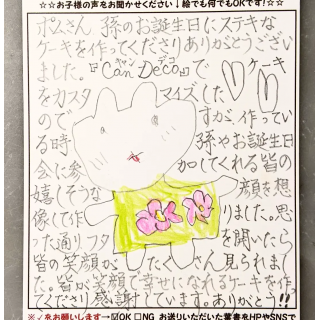 ☆☆お子様の声をお聞かせください↓絵でも何でもOKです！☆☆
ポムさん、孫のお誕生日にステキな
ケーキを作ってくださりありがとうござい
ました。『Can Deco』でケーキ
キャン デコ
をカスタマイズした
のですが、作ってい
る時 孫やお誕生日
会に参加してくれる皆の
嬉しそうな顔を想
像して作りました。思
った通りフタを開いたら
皆の笑顔がたくさん見られまし
た。皆が笑顔で幸せになれるケーキを作っ
てくださり感謝しています。ありがとう!!
※✓をお願いします→☑OK □NG お送りいただいた葉書をHPやSNSで